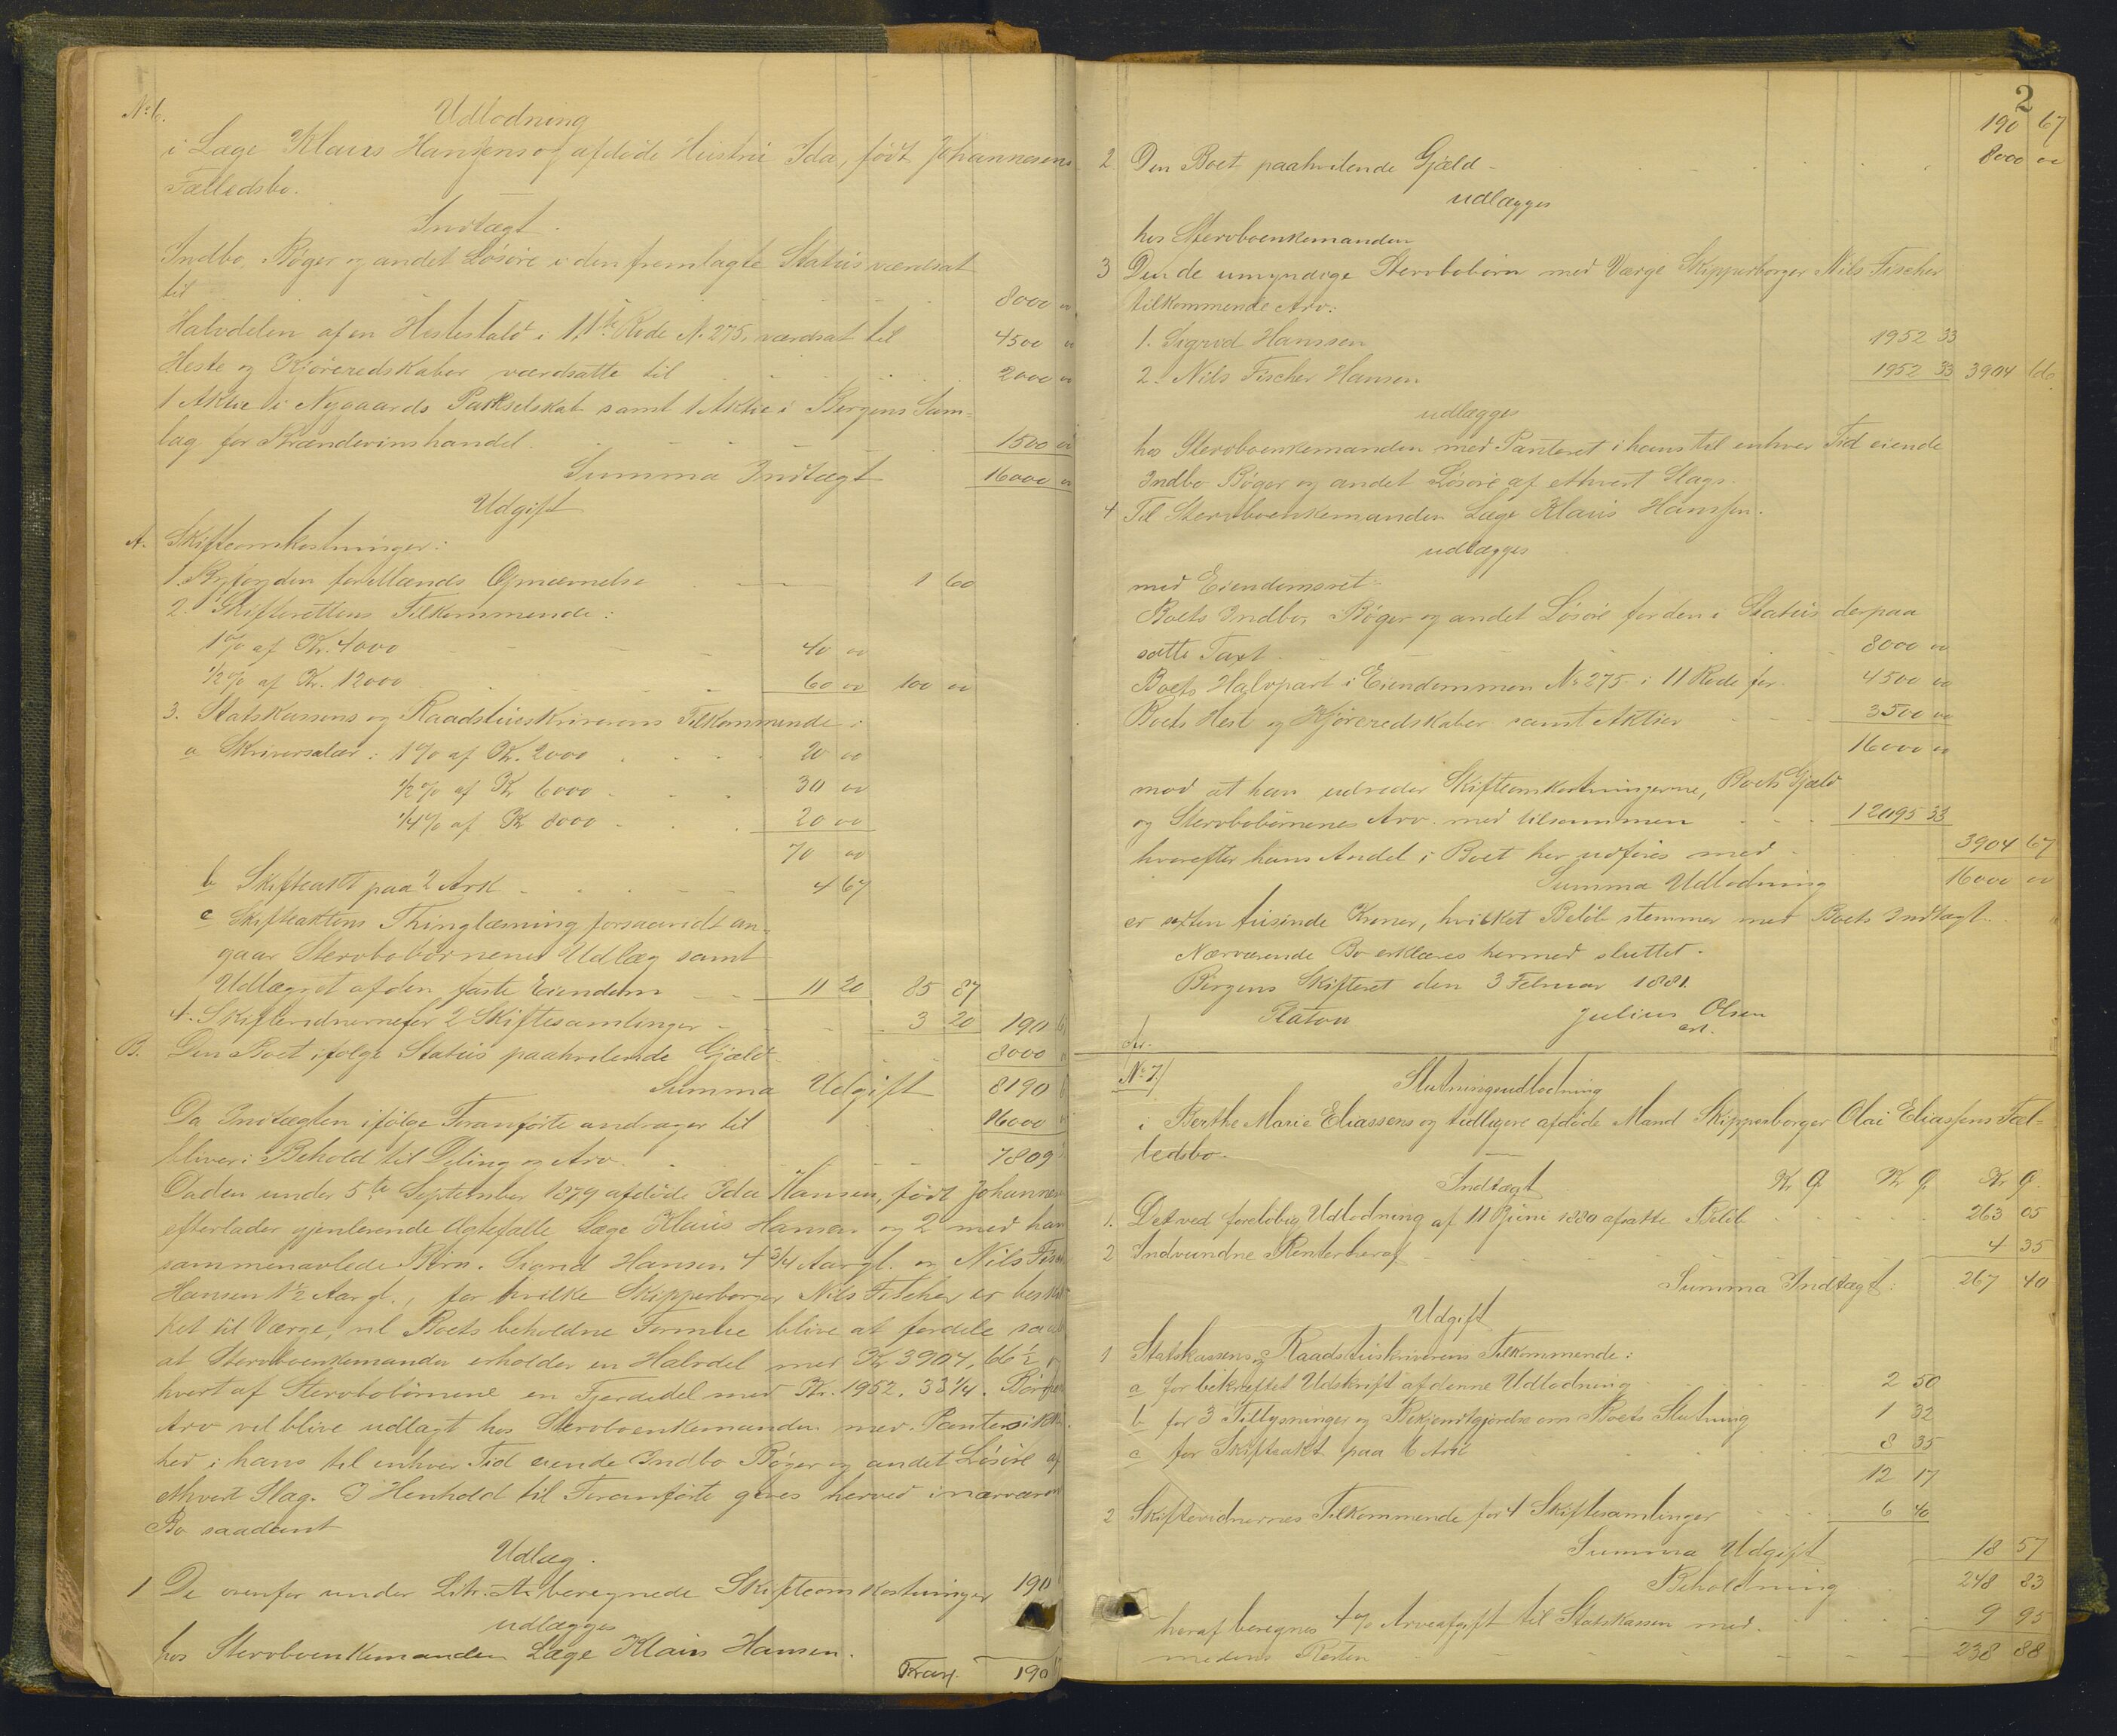 No 6.
Udlodning
i Læge Klaus Hansens og afdøde Hustru Ida, født Johannesens
Fælledsbo.
Indtægt.
Indbo, Bøger og andet Løsøre i den fremlagte Status værdsat
til 8000 00
Halvdelen af en Hestestald i 11te Rode N. 275, værdsat til 4500 00
Heste og Kjøreredskaber værdsatte til 2000 00
1 Aktie i Nygaards Parkselskab samt 1 Aktie i Bergens Sam-
lag for Brændevinshandel. 1500 00
Summa Indtægt 16000 00
Udgift
A. Skifteomkostninger:
1. Byfogden for Opnævnelse 1 60
2. Skifterettens Tilkommende:
1% af Kr. 4000 40 00
1/2% af Kr. 12000 60 00 100 00
3. Statskassens og Raadstueskriverens Tilkommende:
a Skriversalær: 1% af Kr. 2000 20 00
1/2% af Kr 6000 30 00
1/4% af Kr 8000 20 00
70 00
b Skifteakt paa 2 Ark 4 67
c Skifteaktens Thinglæsning forsaavidt an-
gaar Stervbobørnenes Udlæg samt
Udlægget af den faste Eiendom 11 20 85 87
4. Skiftevidnerne for 2 Skiftesamlinger 3 20 190
B. Den Boet ifølge Status paahvilende Gjæld 8000
Summa Udgift 8190
Da Indtægten ifølge Foranførte andrager til 16000
bliver i Behold til Deling og Arv 7809
Da den under 5te September 1879 afdøde Ida Hansen, født Johannes
efterlader gjenlevende Ægtefælle Læge Klaus Hansen og 2 med ham
sammenavlede Børn. Sigrid Hansen 4 3/4 Aar gl. og Nils Fisch
Hansen 1 1/2 Aar gl., for hvilke Skipperborger Nils Fischer er beskik
ket til Værge, vil Boets beholdne Formue blive at fordele saa
at Stervboenkemanden erholder en Halvdel med Kr 3904, 66 1/2
hvert af Stervbobørnene en Fjerdedel med Kr. 1952. 33 1/4. Børnenes
Arv vil blive udlagt hos Stervboenkemanden med Pantesikker
hed i hans til enhver Tid eiende Indbo Bøger og andet Løsøre af
ethvert Slag. I Henhold til Foranførte gjøres herved i nærværende
Bo saadant
Udlæg.
1 De ovenfor under Litr. A beregnede Skifteomkostninger 190
udlægges
hos Stervboenkemanden Læge Klaus Hansen.
Transp. 190
2
190 67
2 Den Boet paahvilende Gjæld 8000 00
udlægges
hos Stervboenkemanden
3 Den de umyndige Stervbobørn med Værge Skipperborger Nils Fischer
tilkommende Arv:
1. Sigrid Hanssen 1952 33
2. Nils Fischer Hansen 1952 33 3904 66
udlægges
hos Stervboenkemanden med Panteret i hans til enhver Tid eiende
Indbo Bøger og andet Løsøre af ethvert Slags.
4 Til Stervboenkemanden Læge Klaus Hanssen.
udlægges
med Eiendomsret
Boets Indbo, Bøger og andet Løsøre for den i Status derpaa
satte Taxt 8000 00
Boets Halvpart i Eiendommen No 275 i 11 Rode for 4500 00
Boets Hest og Kjøreredskaber samt Aktier 3500 00
16000 00
mod at han udreder Skifteomkostningerne, Boets Gjæld
og Stervbobørnenes Arv med tilsammen 12095 33
hvorefter hans Andel i Boet her udføres med 3904 67
Summa Udlodning 16000 00
er sexten tusinde Kroner, hvilket Beløb stemmer med Boets Indtægt.
Nærværende Bo erklæres hermed sluttet.
Bergens Skifteret den 3 Februar 1881.
Platou Julius Olsen
No 7/
Slutningsudlodning
i Berthe Marie Eliassens og tidligere afdøde Mand Skipperborger Olai Eliassens Fæl-
ledsbo.
Indtægt Kr Ø. Kr Ø. Kr Ø.
1. Det ved foreløbig Udlodning af 11 Juni 1880 afsatte Beløb 263 05
2 Indvundne Renter heraf 4 35
Summa Indtægt: 267 40
Udgift
1 Statskassens og Raadstuskriverens Tilkommende:
a for bekræftet Udskrift af denne Udlodning 2 50
b for 3 Tillysninger og Bekjendtgjørelse om Boets Slutning 1 32
c for Skifteakt paa 6 Ark 8 35
12 17
2 Skiftevidnernes Tilkommende for 4 Skiftesamlinger 6 40
Summa Udgift 18 57
Beholdning 248 83
heraf beregnes 4% Arveafgift til Statskassen med 9 95
medens Resten 238 88